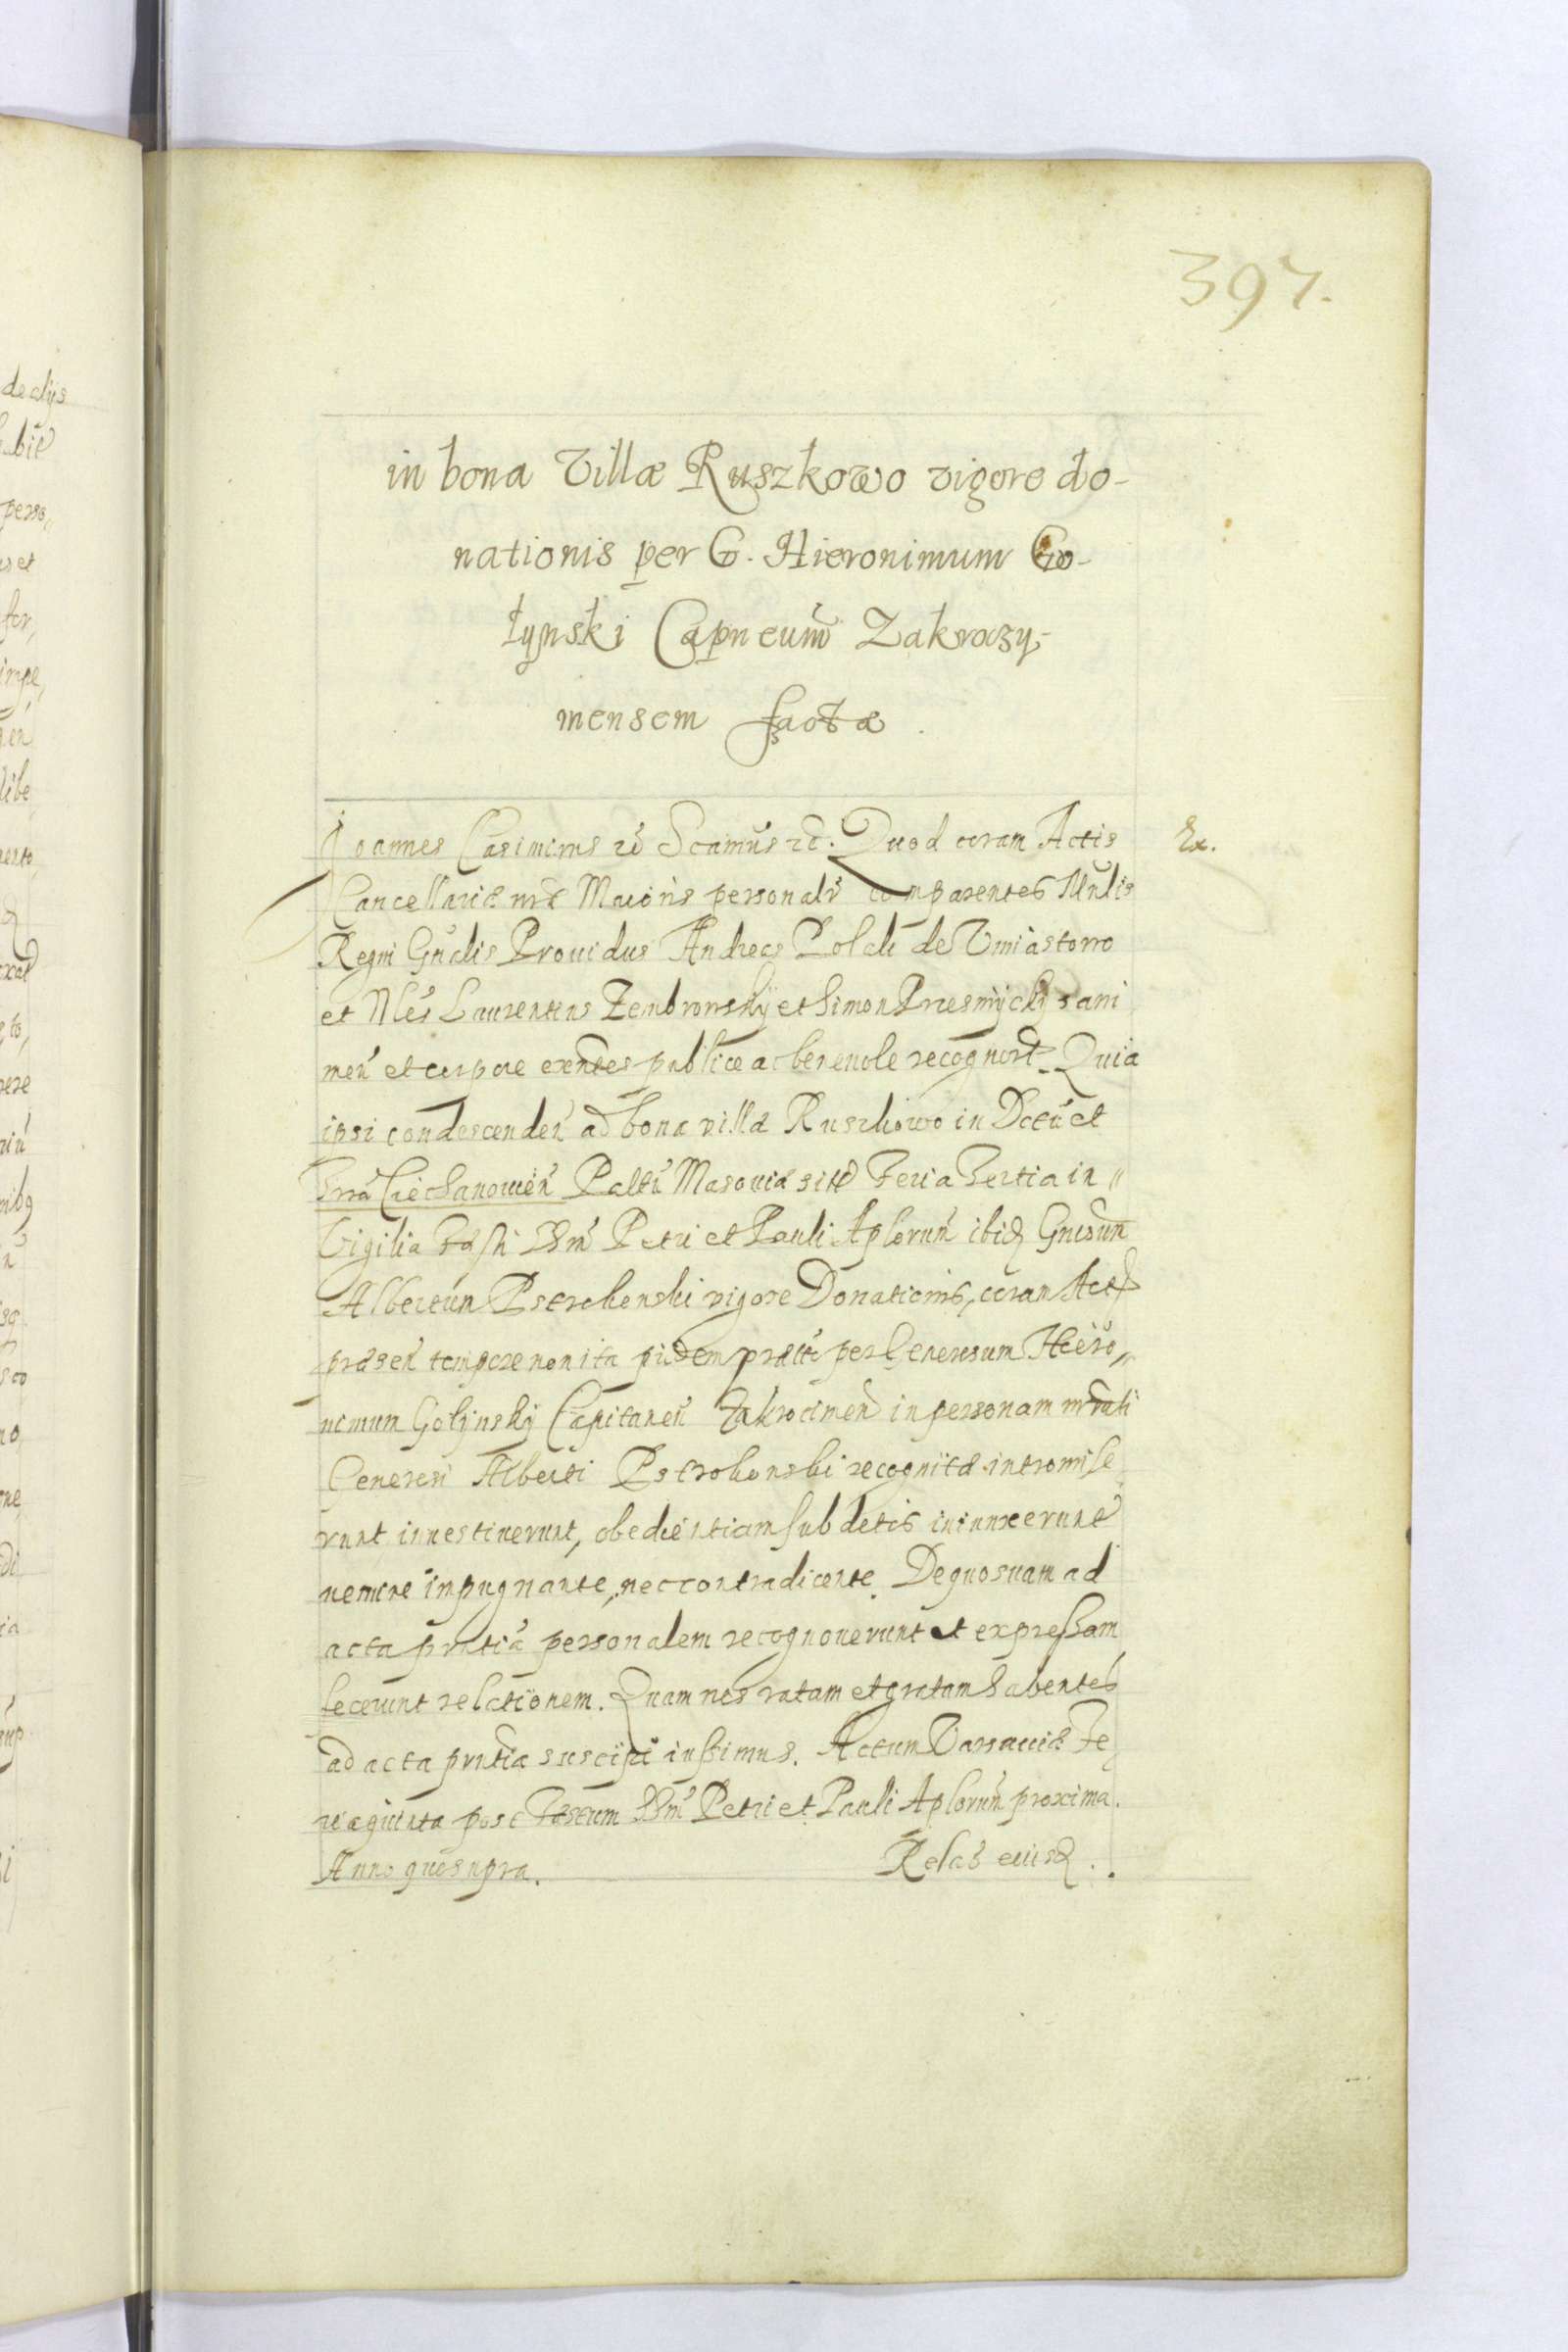 397.
in bona Villæ Ruszkowo vigore do-
nationis per G. Hieronimum Go-
łyński Capneum Zakroczy-
mensem factæ.
Ioannes Casimirus etc Scimus etc. Quod coram Actis
Ex.
Cancellariæ nræ Maioris personalr comparentes Mnlis
Regni Gnalis Prouidus Andreas Polak de Vmiastowo
et Nles Laurentius Zembrowskÿ et Simon Przesmÿckÿ sani
men et corpore exntes publice ac beneuole recognort. Quia
ipsi condescenden ad bona villæ Ruszkowo in Dctu et
Trra Ciechanouien Paltu Masouiæ sita Feria Tertia in
Vigilia Festi SSm Petri et Pauli Aplorum ibid Gnsum
Albertum Pstrokonski vigore Donationis, coram Act
præsen tempore non ita pridem præte per Generosum Hiero,,
nimum Golÿnskÿ Capitaneu Zakrocimen in personam mrati
Generosi Alberti Pstrokonski recognitæ intromise
runt inuestiuerunt, obedientiam subdetis iniunxerunt
nemine impugnante, nec contradicente. De quo suam ad
acta prntia personalem recognouerunt et expressam
fecerunt relationem. Quam nos ratam et gratam habentes
ad acta prntia suscipi iussimus. Actum Varsauiæ Fe
ria quinta post Festum SSm Petri et Pauli Aplorum proxima.
Anno quo supra.
Relao eiusd.